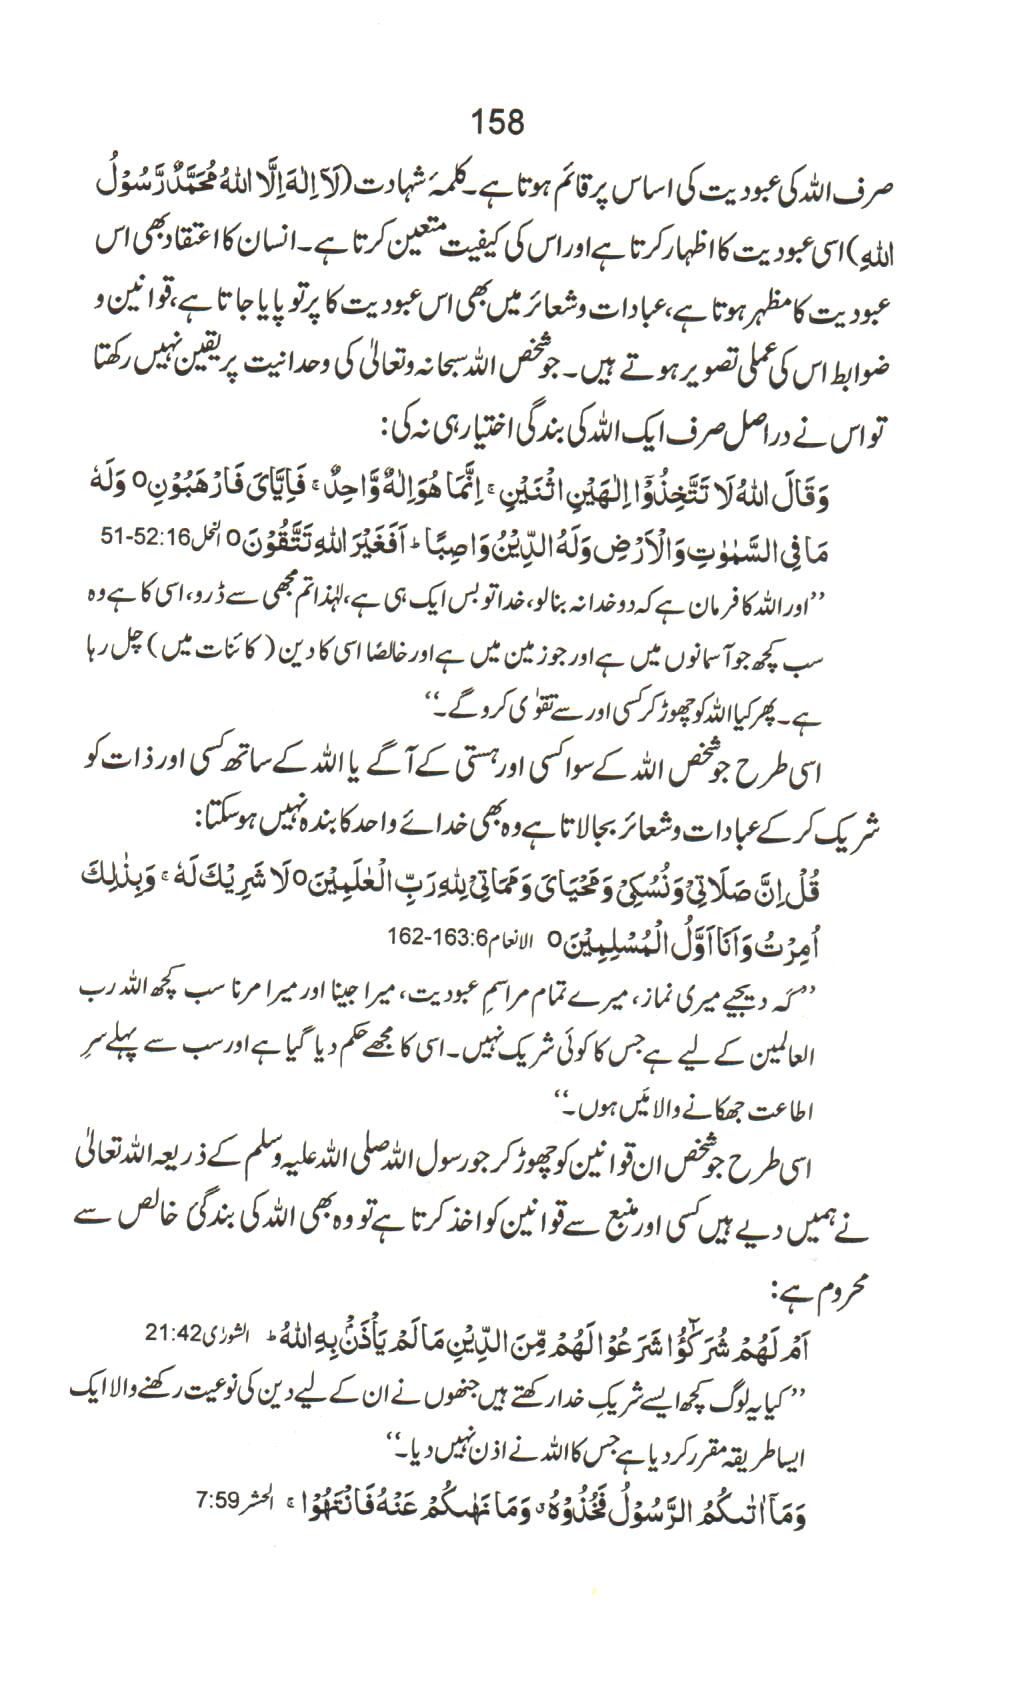 158
صرف اللہ کی عبودیت کی اساس پر قائم ہوتا ہے۔ کلمۂ شہادت (لَآ اِلٰہَ اِلَّا اللہُ مُحَمَّدٌ رَّسُوْلُ
اللہِ) اسی عبودیت کا اظہار کرتا ہے اور اس کی کیفیت متعین کرتا ہے۔ انسان کا اعتقاد بھی اس
عبودیت کا مظہر ہوتا ہے، عبادات و شعائر میں بھی اس عبودیت کا پرتو پایا جاتا ہے، قوانین و
ضوابط اس کی عملی تصویر ہوتے ہیں۔ جو شخص اللہ سبحانہ وتعالیٰ کی وحدانیت پر یقین نہیں رکھتا
تو اس نے دراصل صرف ایک اللہ کی بندگی اختیار ہی نہ کی:
وَقَالَ اللہُ لَا تَتَّخِذُوْٓا اِلٰہَیْنِ اثْنَیْنِ ۚ اِنَّمَا ھُوَ اِلٰہٌ وَّاحِدٌ ۚ فَاِیَّایَ فَارْھَبُوْنِ o وَلَہٗ
مَا فِی السَّمٰوٰتِ وَالْاَرْضِ وَلَہُ الدِّیْنُ وَاصِبًا ؕ اَفَغَیْرَ اللہِ تَتَّقُوْنَ o النحل 51-52:16
’’اور اللہ کا فرمان ہے کہ دو خدا نہ بنا لو، خدا تو بس ایک ہی ہے، لہٰذا تم مجھی سے ڈرو، اسی کا ہے وہ
سب کچھ جو آسمانوں میں ہے اور جو زمین میں ہے اور خالصًا اسی کا دین (کائنات میں) چل رہا
ہے۔ پھر کیا اللہ کو چھوڑ کر کسی اور سے تقوٰی کرو گے۔‘‘
اسی طرح جو شخص اللہ کے سوا کسی اور ہستی کے آگے یا اللہ کے ساتھ کسی اور ذات کو
شریک کر کے عبادات و شعائر بجا لاتا ہے وہ بھی خدائے واحد کا بندہ نہیں ہو سکتا:
قُلْ اِنَّ صَلَاتِیْ وَنُسُکِیْ وَمَحْیَایَ وَمَمَاتِیْ لِلہِ رَبِّ الْعٰلَمِیْنَ o لَا شَرِیْکَ لَہٗ ۚ وَبِذٰلِکَ
اُمِرْتُ وَاَنَا اَوَّلُ الْمُسْلِمِیْنَ o الانعام 162-163:6
’’کہ دیجیے میری نماز، میرے تمام مراسمِ عبودیت، میرا جینا اور میرا مرنا سب کچھ اللہ رب
العالمین کے لیے ہے جس کا کوئی شریک نہیں۔ اسی کا مجھے حکم دیا گیا ہے اور سب سے پہلے سرِ
اطاعت جھکانے والا مَیں ہوں۔‘‘
اسی طرح جو شخص ان قوانین کو چھوڑ کر جو رسول اللہ صلی اللہ علیہ وسلم کے ذریعہ اللہ تعالیٰ
نے ہمیں دیے ہیں کسی اور منبع سے قوانین کو اخذ کرتا ہے تو وہ بھی اللہ کی بندگیٔ خالص سے
محروم ہے:
اَمْ لَھُمْ شُرَکٰٓؤُا شَرَعُوْا لَھُمْ مِّنَ الدِّیْنِ مَا لَمْ یَاْذَنْۢ بِہِ اللہُ ؕ الشورٰی 21:42
’’کیا یہ لوگ کچھ ایسے شریکِ خدا رکھتے ہیں جنھوں نے ان کے لیے دین کی نوعیت رکھنے والا ایک
ایسا طریقہ مقرر کر دیا ہے جس کا اللہ نے اذن نہیں دیا۔‘‘
وَمَآ اٰتٰىکُمُ الرَّسُوْلُ فَخُذُوْہُ ۤ وَمَا نَھٰىکُمْ عَنْہُ فَانْتَھُوْا ۚ الحشر 7:59